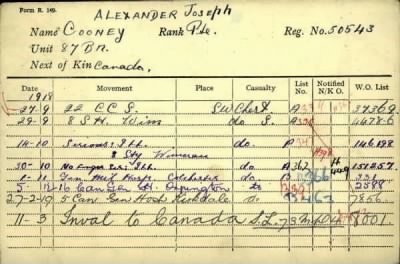 Form B. 149.
ALEXANDER Joseph
Name COONEY Rank Pte. Reg. No. 50543
Unit 87 Bn.
Next of Kin Canada.
Date Movement Place Casualty List No. Notified N/K O. W.O. List
1918
27-9 22 C C S. SW Chest A
29-9 8 S.H. Wim do S. A
14-10 Serious Ill. do. 146198
8 Sty Wimereux
30-10 No longer Ser. Ill. do A367 151257
1-11 Mil Hosp. Colchester do B 366
5-12 16 Can Gen H. Orpington do 2588
27-2-19 5 Can Gen Hosp Kirkdale do B463 7856
11-3 Inval to Canada S.L. 8001